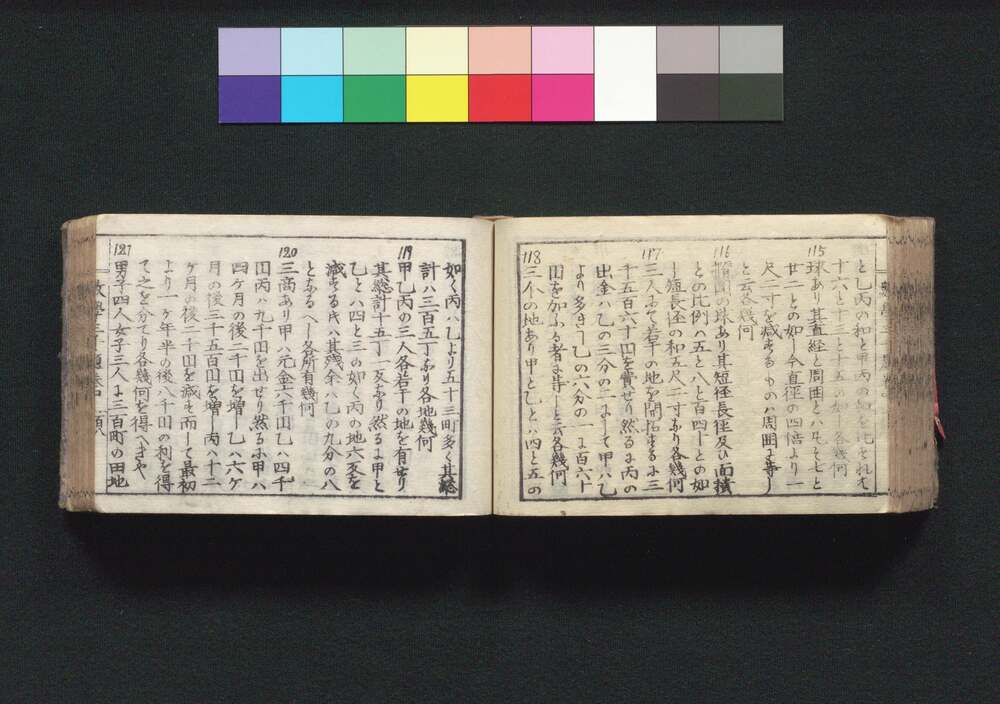 と乙丙の和と甲丙の和の比をれ七
十六と十三と十五の如し各幾何
115
球あり其直経と周囲とハ尺そ七と
廿二との如し今直径の四倍より一
尺二寸を減するものハ周囲に等し
と云各幾何
116
楕圓の球あり其短径長径及ひ面積
との比例ハ五と八と百四十との如
し短長径の和五尺二寸なり各幾何
117
三人ふて若干の地を開拓するふ三
千五百六十田を費せり然るふ丙の
出金ハ乙の三分の二ふして甲ハ乙
より多き事乙の六分の一ふ百六十
田を加ふる者ふ等しと云各幾何
118
三个の地あり甲と乙とハ四と五の
如く丙ハ乙より五十三町多く其総
計ハ三百五丁なり各地幾何
119
甲乙丙の三人各若干の地を有せり
其総計十五丁一反なり然るふ甲と
乙とハ四と三の如く丙の地六反を
減する時ハ其残余ハ乙の九分の八
となるへし各所有幾何
120
三商あり甲ハ元金六千田乙ハ四千
田丙ハ九千田を出せり然るふ甲ハ
四ケ月の後二千田を増し乙ハ六ケ
月の後三千五百田を増し丙ハ十二
ケ月の後二千田を減せ而して最初
より一ケ年半の後八千田の利を得
て之を分てり各幾何を得へきや
121
男子四人女子三人ふ三百町の田地